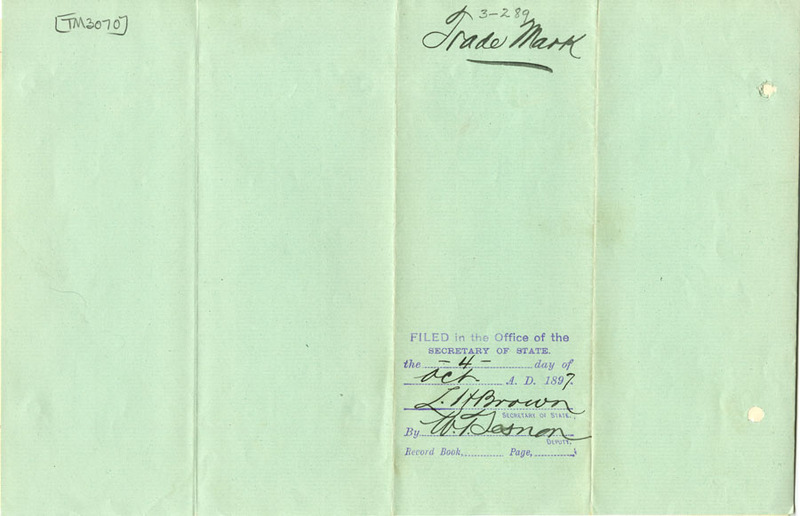 [TM3070]
3-289
Trade Mark
FILED in the Office of the
SECRETARY OF STATE.
the -4- day of
Oct A. D. 1897.
L. H Brown
SECRETARY OF STATE.
By W. T.
DEPUTY.
Record Book, Page,